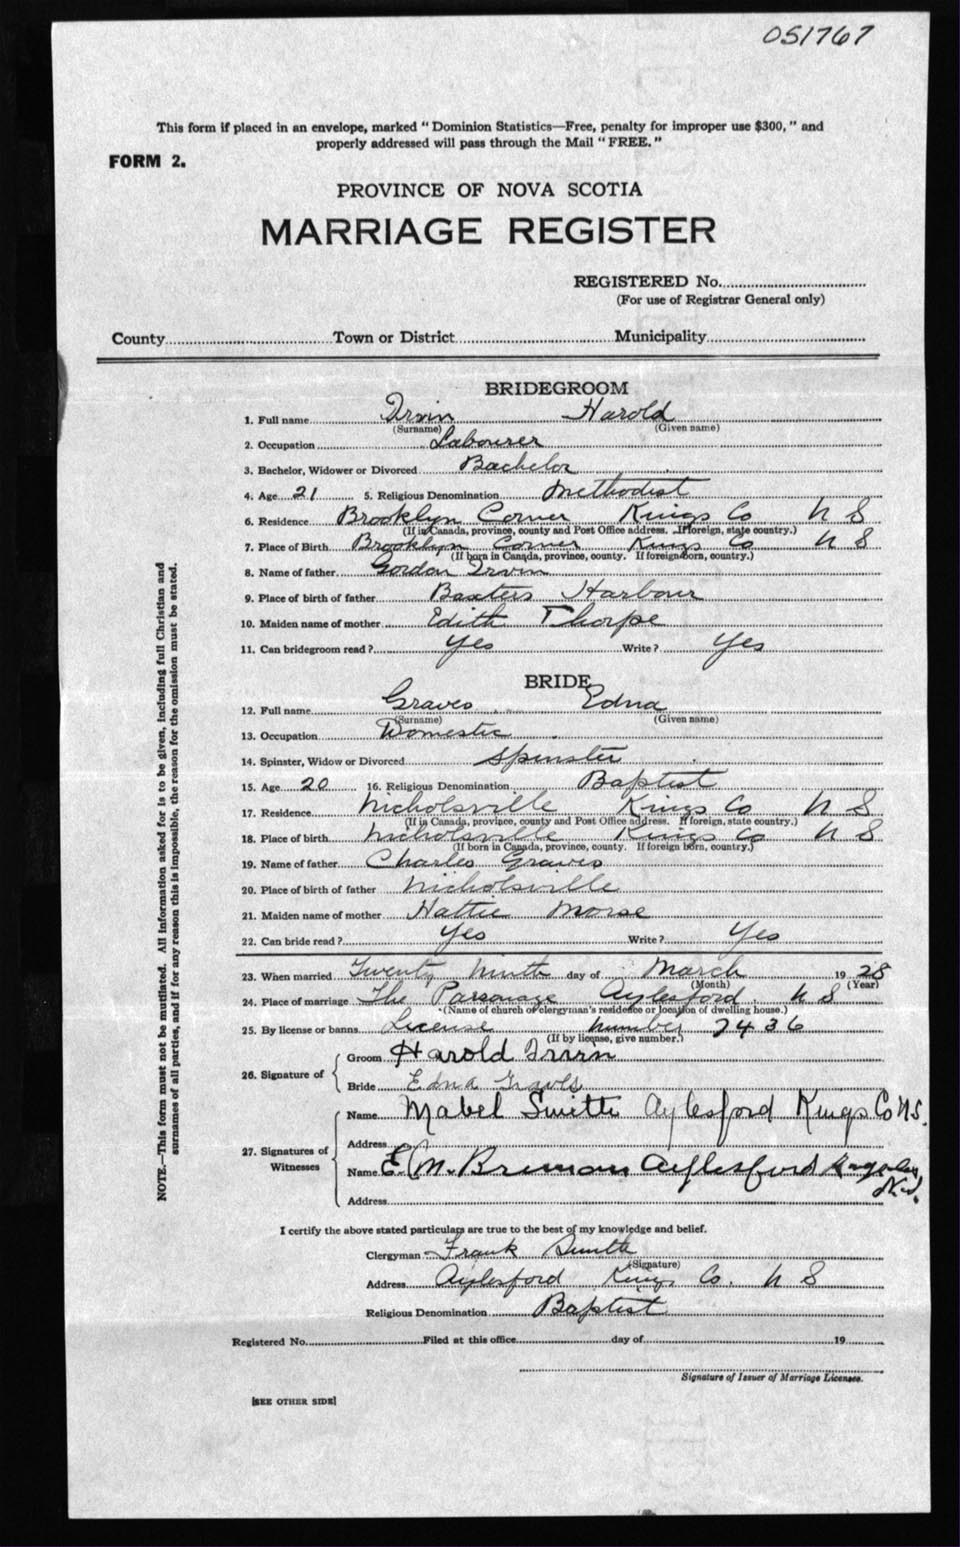 051767
This form if placed in an envelope, marked "Dominion Statistics—Free, penalty for improper use $300," and
properly addressed will pass through the Mail "FREE."
FORM 2.
PROVINCE OF NOVA SCOTIA
MARRIAGE REGISTER
REGISTERED No.
(For use of Registrar General only)
County Town or District Municipality
BRIDEGROOM
1. Full name Irvin Harold
(Surname) (Given name)
2. Occupation Labourer
3. Bachelor, Widower or Divorced Bachelor
4. Age 21 5. Religious Denomination Methodist
6. Residence Brooklyn Corner Kings Co N S
(If in Canada, province, county and Post Office address. If foreign, state country.)
7. Place of Birth Brooklyn Corner Kings Co N S
(If born in Canada, province, county. If foreign born, country.)
8. Name of father Gordon Irvin
9. Place of birth of father Baxters Harbour
10. Maiden name of mother Edith Thorpe
11. Can bridegroom read? Yes Write? Yes
BRIDE
12. Full name Graves Edna
(Surname) (Given name)
13. Occupation Domestic
14. Spinster, Widow or Divorced Spinster
15. Age 20 16. Religious Denomination Baptist
17. Residence Nicholsville Kings Co N S
(If in Canada, province, county and Post Office address. If foreign, state country.)
18. Place of birth Nicholsville Kings Co N S
(If born in Canada, province, county. If foreign born, country.)
19. Name of father Charles Graves
20. Place of birth of father Nicholsville
21. Maiden name of mother Hattie Morse
22. Can bride read? Yes Write? Yes
23. When married Twenty Ninth day of March 19 28
(Month) (Year)
24. Place of marriage The Parsonage Aylesford N S
(Name of church or clergyman's residence or location of dwelling house.)
25. By license or banns License Number 7436
(If by license, give number.)
26. Signature of
Groom Harold Irvin
Bride Edna Graves
27. Signatures of Witnesses
Name Mabel Smith Aylesford Kings Co N S.
Address
Name E. M. Aylesford
Address
I certify the above stated particulars are true to the best of my knowledge and belief.
Clergyman Frank Smith
(Signature)
Address Aylesford Kings Co. N S
Religious Denomination Baptist
Registered No. Filed at this office day of 19
Signature of Issuer of Marriage Licenses.
[SEE OTHER SIDE]
NOTE.—This form must not be mutilated. All information asked for is to be given, including full Christian and
surnames of all parties, and if for any reason this is impossible, the reason for the omission must be stated.